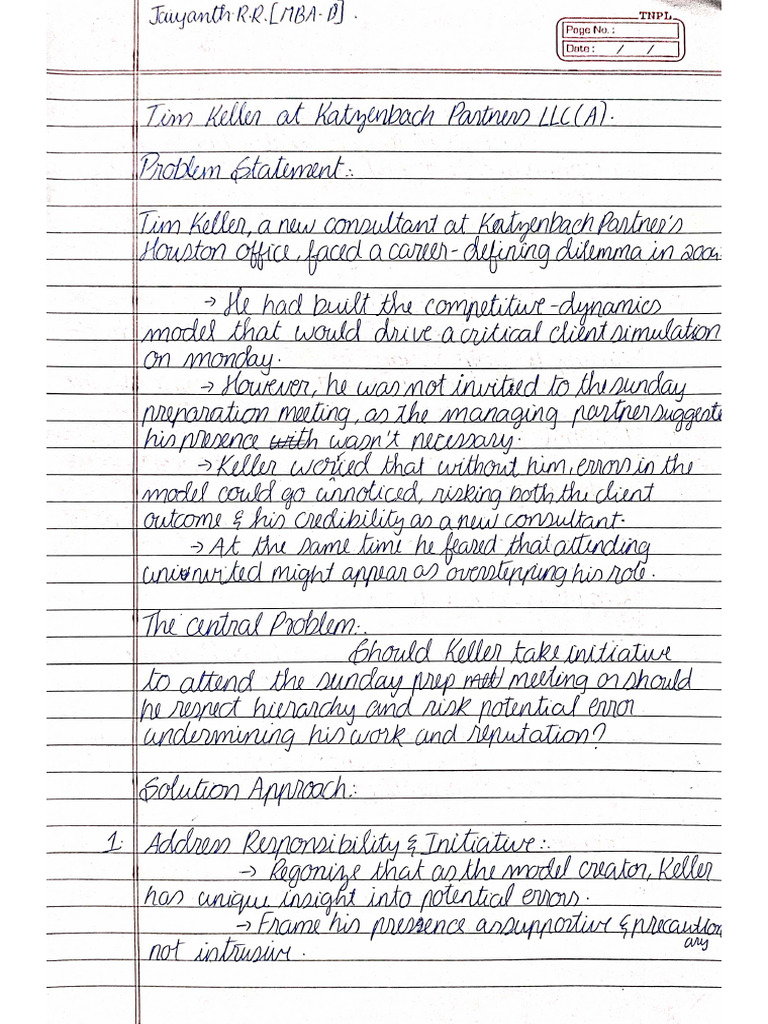 Jaiyanth.R.R.[MBA-B].
TNPL
Page No. :
Date : / /
Tim Keller at Katzenbach Partners LLC(A).
Problem Statement:.
Tim Keller, a new consultant at Katzenbach Partner's
Houston office, faced a career-defining dilemma in
→ He had built the competitive-dynamics
model that would drive a critical client simulation
on monday.
→ However, he was not invited to the sunday
preparation meeting, as the managing partner suggeste
his presence with wasn't necessary.
→ Keller worried that without him, errors in the
model could go unnoticed, risking both the client
outcome & his credibility as a new consultant.
→ At the same time he feared that attending
uninvited might appear as overstepping his role.
The central Problem:.
Should Keller take initiative
to attend the sunday prep meeting or should
he respect hierarchy and risk potential error
undermining his work and reputation?
Solution Approach:.
1. Address Responsibility & Initiative:.
→ Regonize that as the model creator, Keller
has unique insight into potential errors.
→ Frame his pressence as supportive & precaution
ary
not intrusive.